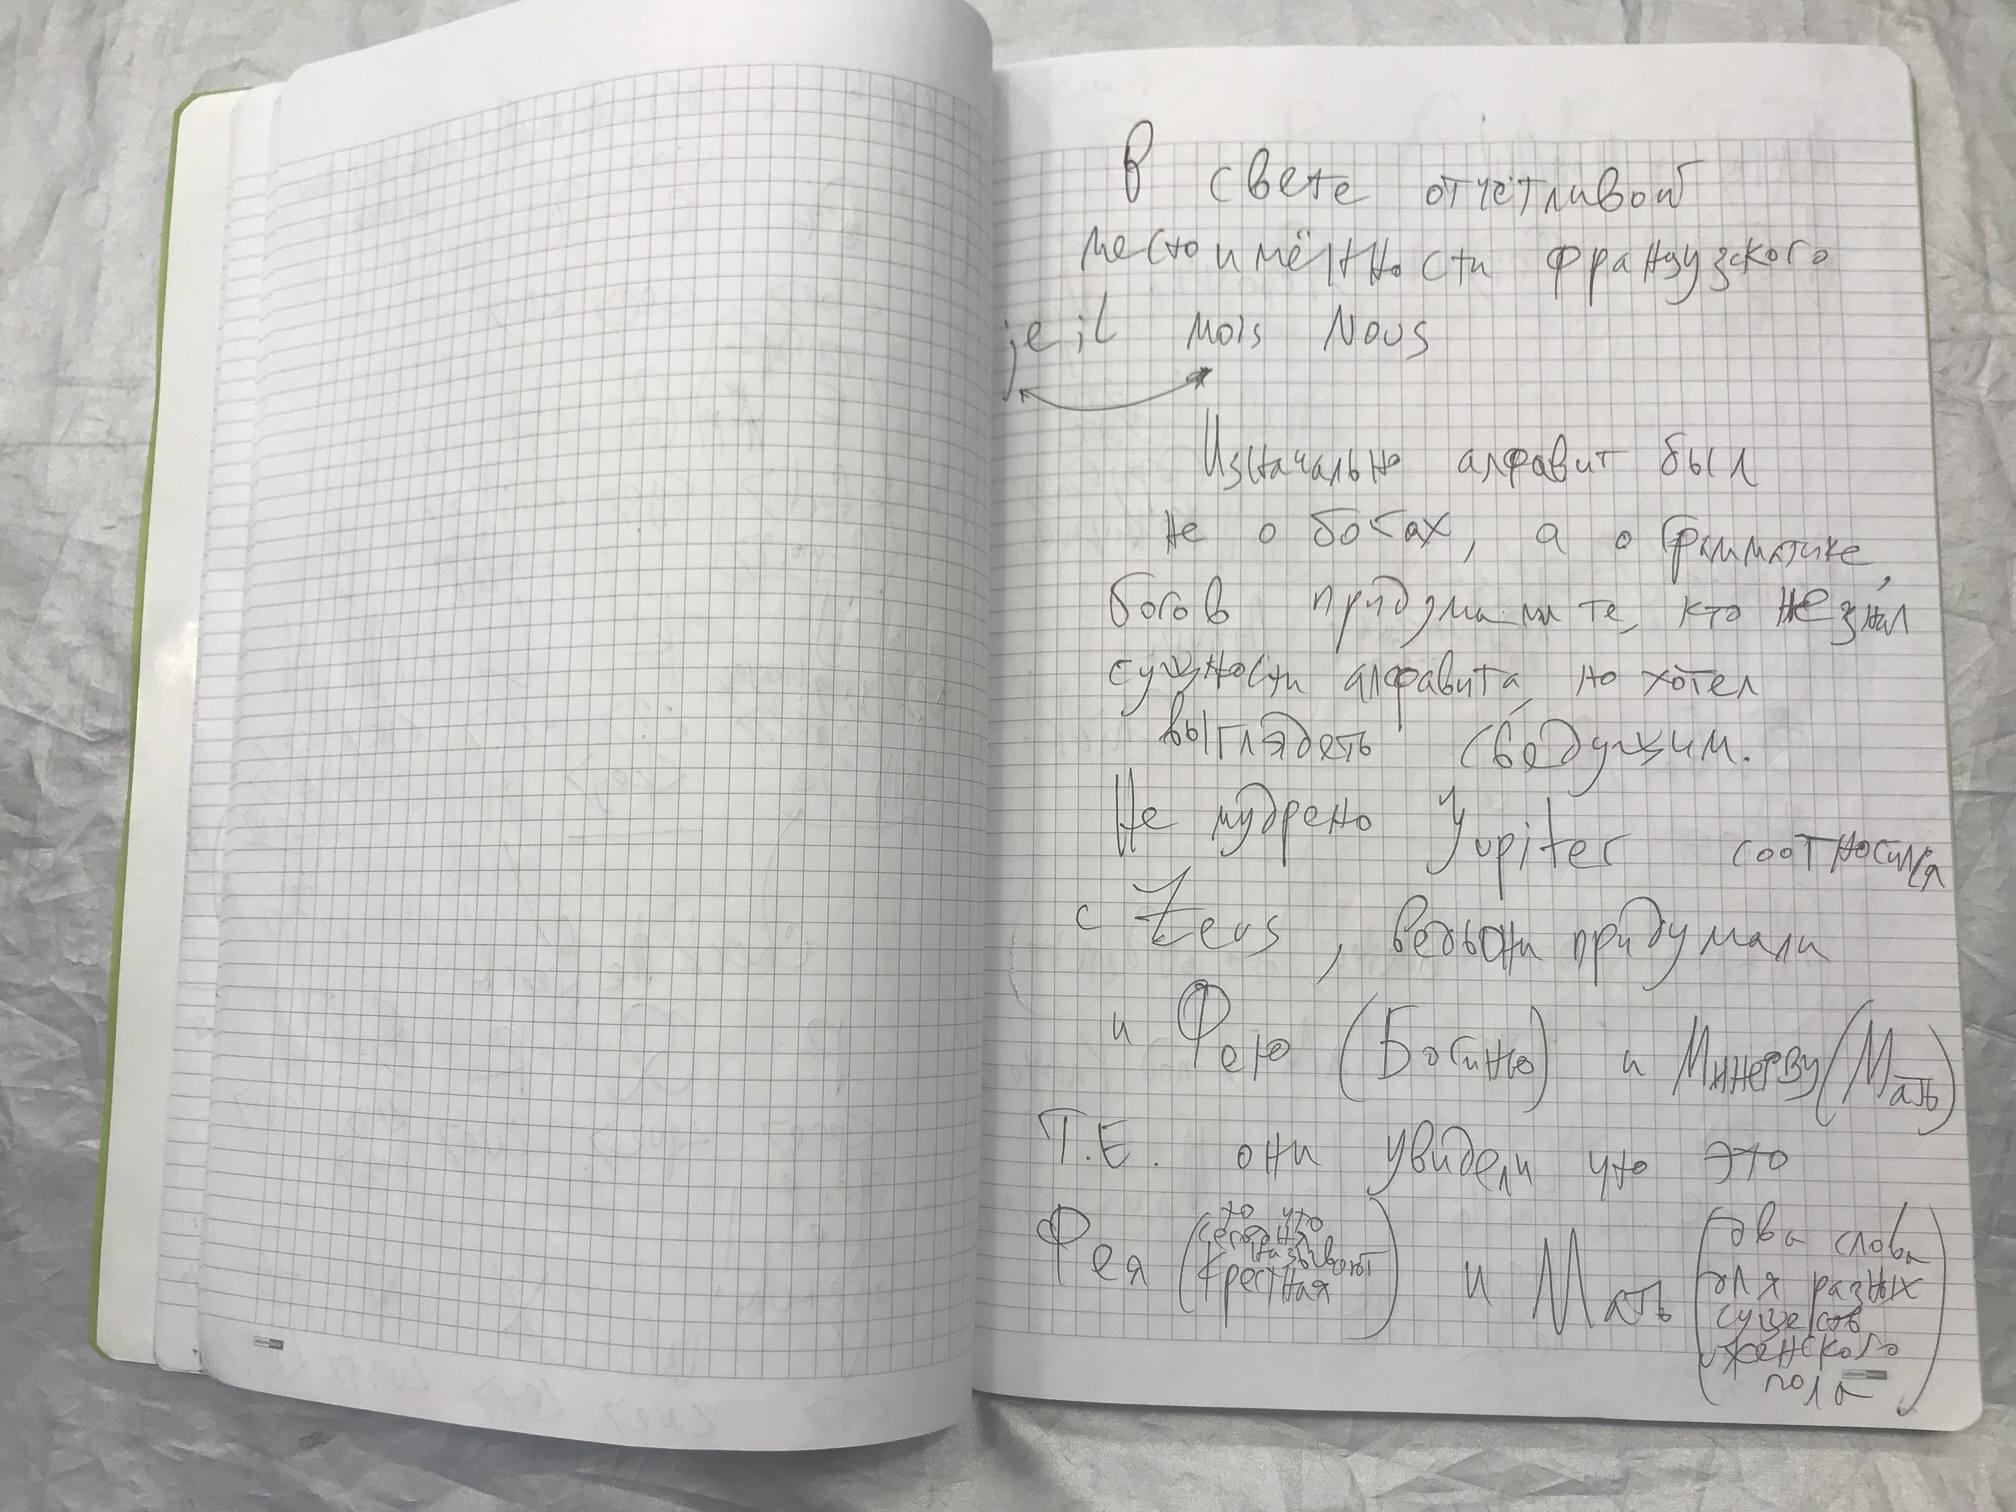 В свете отчётливой
местоимённости французского
je il mois Nous
Изначально алфавит был
не о богах, а о Грамматике,
богов придумали те, кто не знал
сущности алфавита, но хотел
выглядеть сведущим.
Не мудрено Jupiter соотносился
с Zeus, ведь они придумали
и Фею (Богиню) и Минерву (Мать)
Т.Е. они увидели что это
Фея (то что сегодня называют Крестная) и Мать (два слова
для разных
существ
женского
пола)